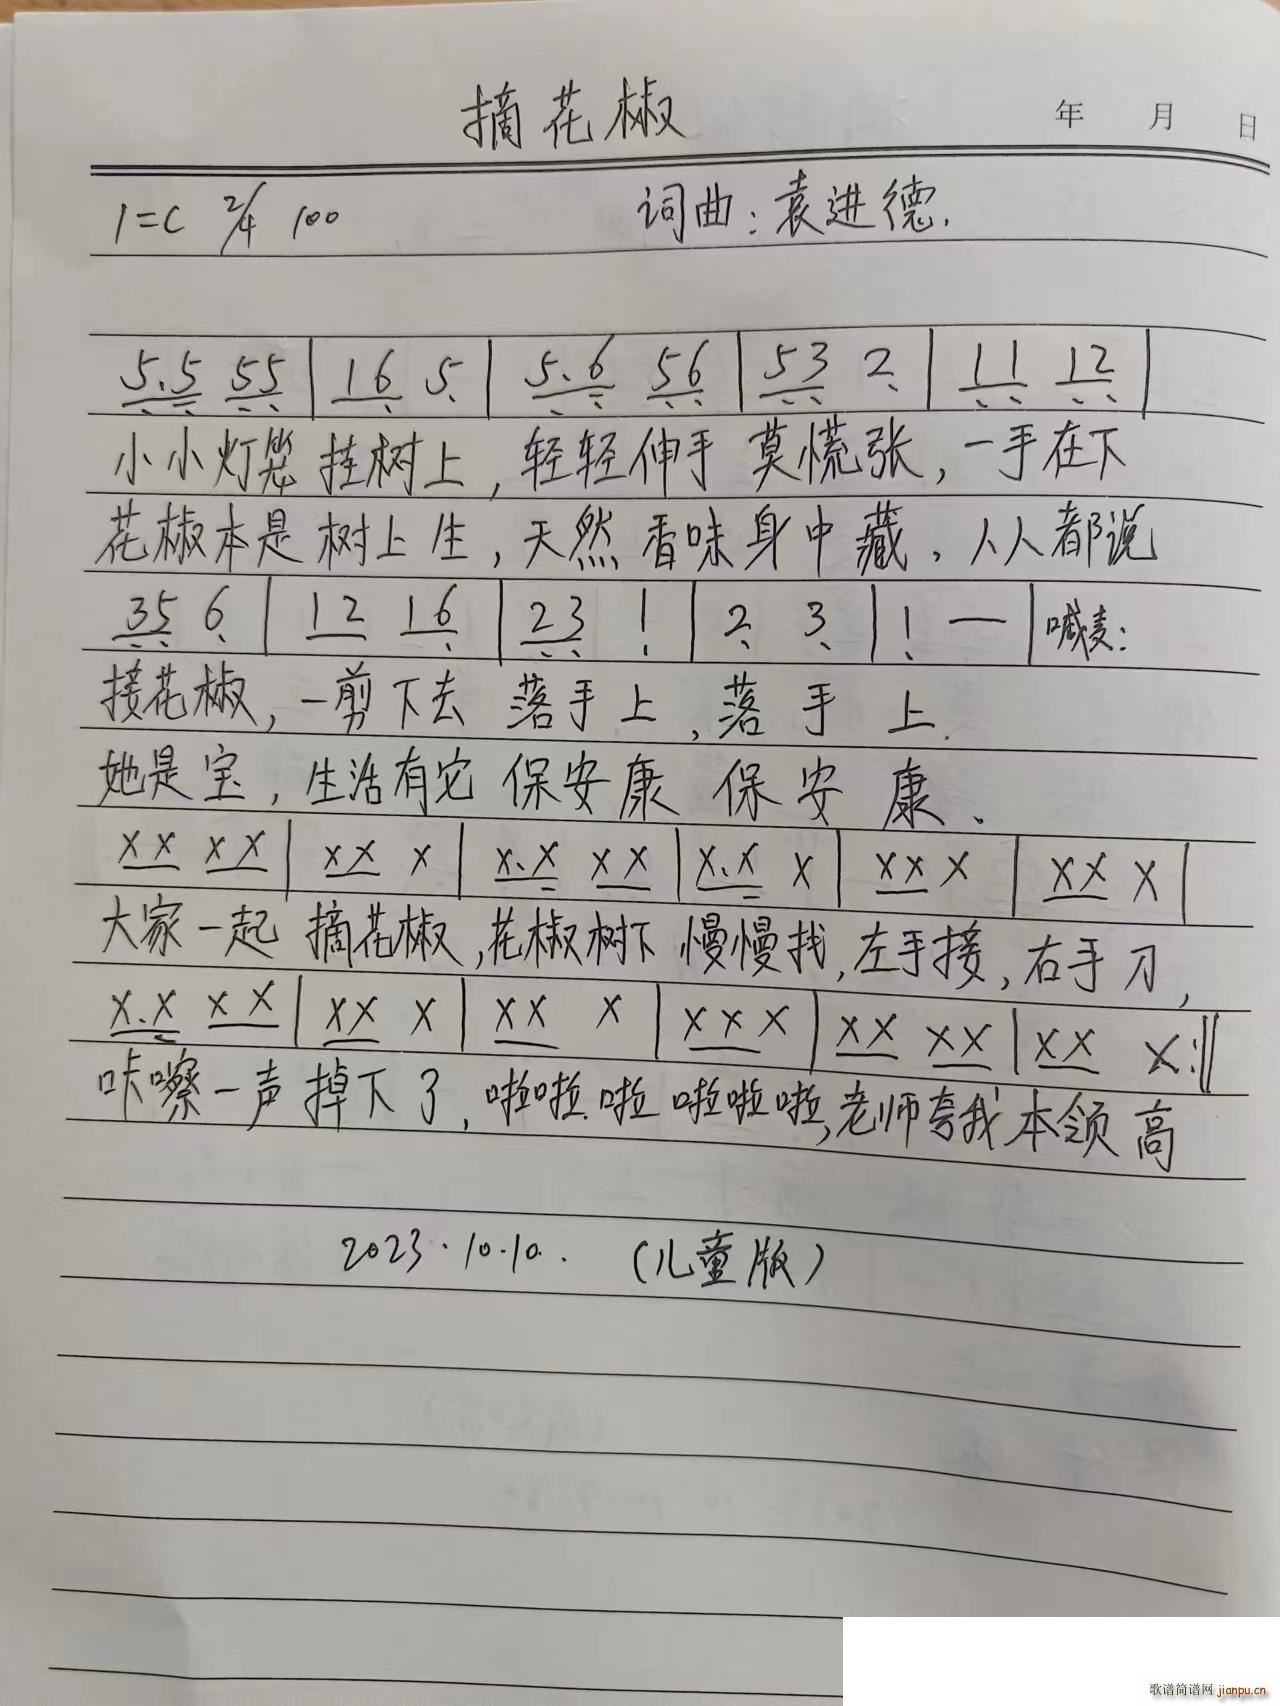 摘花椒
年 月 日
1=C 2/4 100 词曲:袁进德.
5.5 55 | 16 5 | 5.6 56 | 53 2 | 11 12 |
小小灯笼 挂树上,轻轻伸手 莫慌张,一手在下
花椒本是 树上生,天然香味身中藏,人人都说
35 6 | 12 16 | 23 1 | 2 3 | 1 — | 喊麦:
接花椒,一剪下去 落手上,落手上.
她是宝,生活有它 保安康 保安康、
xx xx | xx x | x.x xx | x.x x | xx x | xx x |
大家一起 摘花椒,花椒树下 慢慢找,左手接,右手刀,
x.x xx | xx x | xx x | xxx | xx xx | xx x:||
咔嚓一声掉下了,啦啦.啦 啦啦啦,老师夸我 本领高
2023.10.10. (儿童版)
歌谱简谱网 jianpu.cn